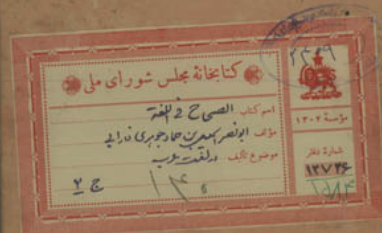 كتابخانهٔ مجلس شورای ملی
اسم کتاب الصحاح فی اللغة
مؤلف ابونصر اسمعیل بن حماد جوهری فارابی
موضوع تألیف در لغت عرب
ج ۲
مؤسسهٔ ۱۳۰۲
شمارهٔ دفتر
۱۳۷۳۶